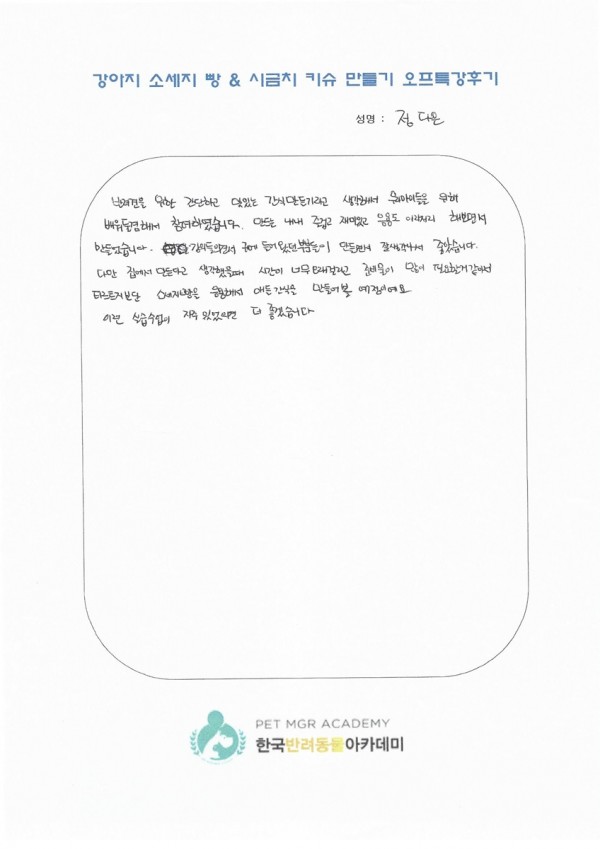 강아지 소세지 빵 & 시금치 키슈 만들기 오프특강후기
성명 : 정다은
반려견을 위한 간단하고 맛있는 간식만들기라고 생각해서 우리아이들을 위해
배워둘겸해서 참여하였습니다. 만드는 내내 즐겁고 재미있고 응용도 이리저리 해보면서
만들었습니다. 강의들으면서 귀에 들어왔던 부분들이 만들면서 잘생각나서 좋았습니다.
다만 집에서 만든다고 생각했을때 시간이 너무 오래걸리고 준비물이 많이 필요한거같아서
소세지빵을 응용해서 만들어볼 예정이에요
이런 실습수업이 자주 있었으면 더 좋겠습니다
PET MGR ACADEMY
한국반려동물아카데미